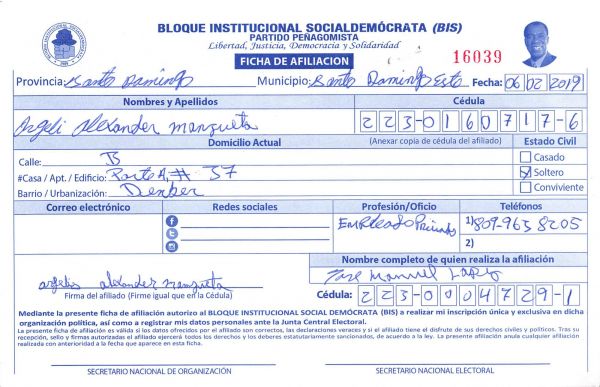 BLOQUE INSTITUCIONAL SOCIALDEMÓCRATA (BIS)
PARTIDO PEÑAGOMISTA
Libertad, Justicia, Democracia y Solidaridad
FICHA DE AFILIACION
16039
Provincia: Santo Domingo Municipio: Santo Domingo Este Fecha: 06 02 2019
Nombres y Apellidos Cédula
Argeli Alexander Manzueta 223-0160717-6
Domicilio Actual (Anexar copia de cédula del afiliado) Estado Civil
Calle: B Casado
#Casa / Apt. / Edificio: Parte A, # 37 Soltero
Barrio / Urbanización: Conviviente
Correo electrónico Redes sociales Profesión/Oficio Teléfonos
Empleado Privado 1) 809-963 8205
2)
Nombre completo de quien realiza la afiliación
argelis alexander manzueta Jose Manuel Lopez
Firma del afiliado (Firme igual que en la Cédula) Cédula: 223-0004729-1
Mediante la presente ficha de afiliación autorizo al BLOQUE INSTITUCIONAL SOCIAL DEMÓCRATA (BIS) a realizar mi inscripción única y exclusiva en dicha
organización política, así como a registrar mis datos personales ante la Junta Central Electoral.
La presente ficha de afiliación es válida si los datos ofrecidos por el afiliado son correctos, las declaraciones veraces y si el afiliado tiene el disfrute de sus derechos civiles y políticos. Tras su
recepción, sello y firmas autorizadas el afiliado ejercerá todos los derechos y los deberes estatutariamente sancionados, de acuerdo a la ley. La presente afiliación anula cualquier afiliación
realizada con anterioridad a la fecha que aparece en esta ficha.
SECRETARIO NACIONAL DE ORGANIZACIÓN SECRETARIO NACIONAL ELECTORAL